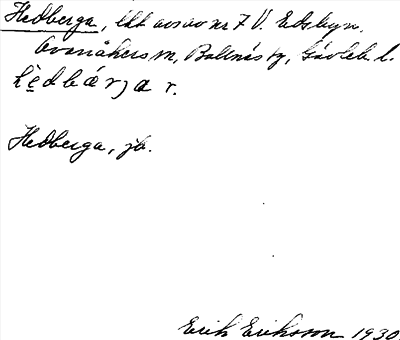 Hedberga, ett av av nr 7 V. Edsbyn.
Ovanåkers sn, Bollnäs tg, Gävleb. l.
hèdbárja r.
Hedberga, jb.
Erik Eriksson 1930.